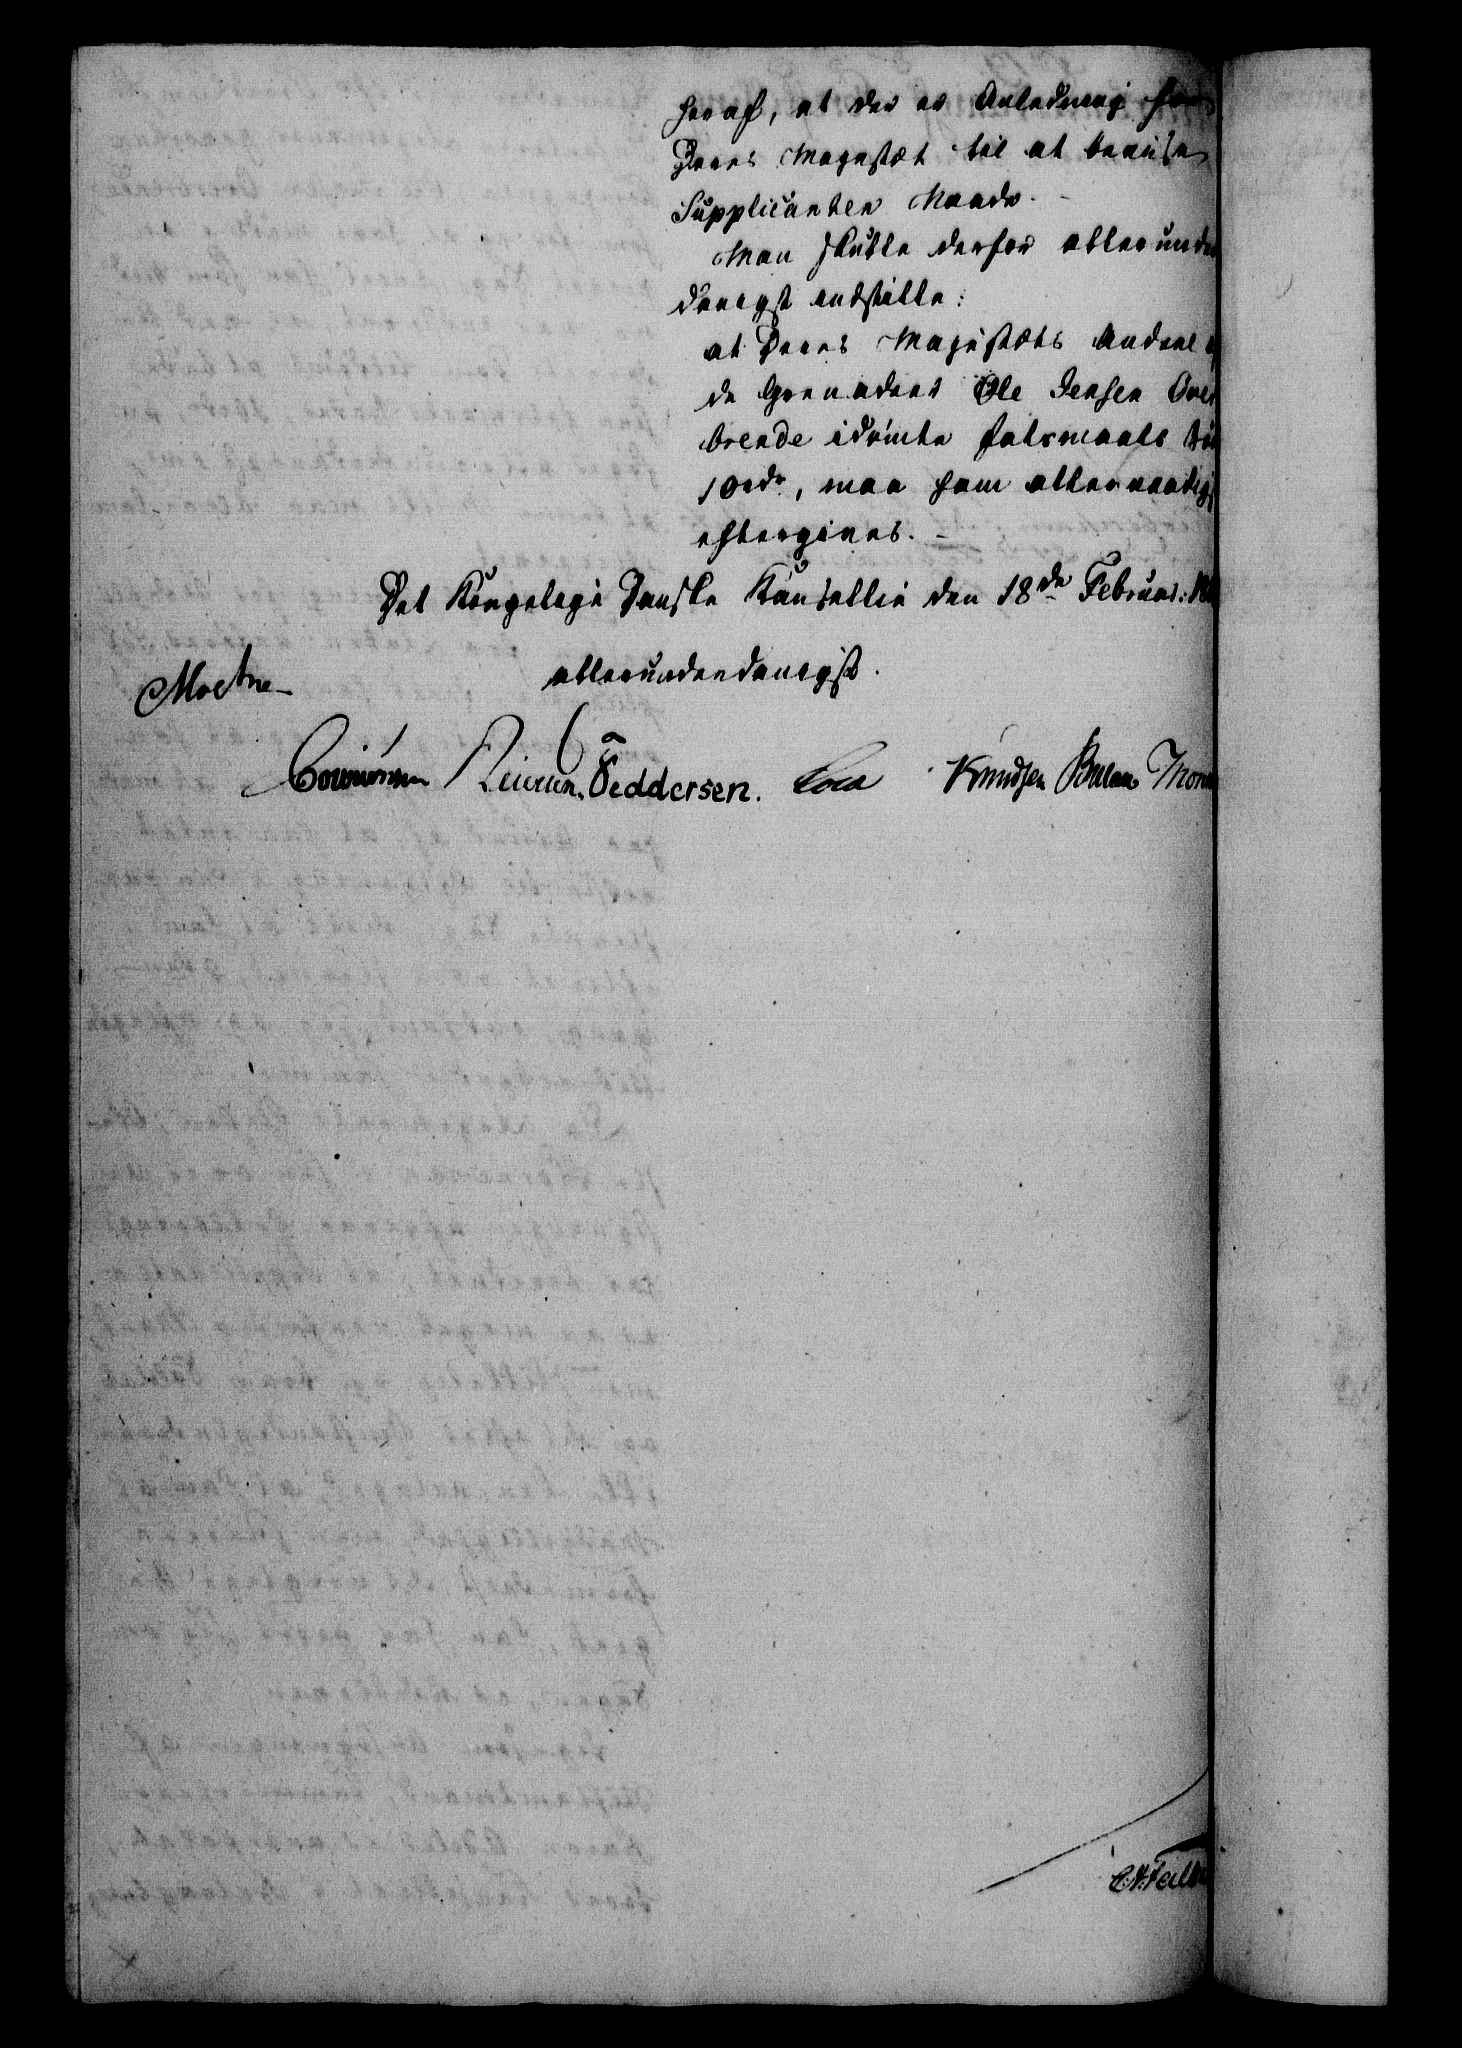 heraf, at der er Anledning for
Deres Majestæt til at beviise
Supplicanten Naade.
Man skulde derfor allerunder
danigst indstille:
at Deres Majestæts Andeel i
de Grenadeer Ole Jensen Over
brende idømte Leiermaals Bø
10rdr, maa ham allernaadigst
eftergives.
Det Kongelige Danske Kancellie den 18de Februar: 18
allerunderdanigst.
Feddersen. Knudsen